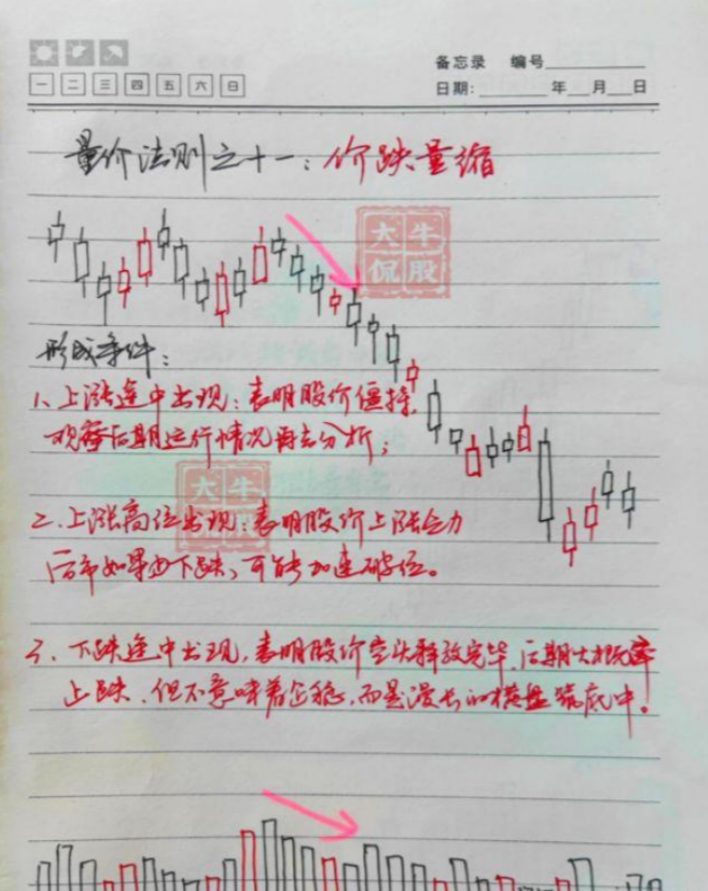 备忘录 编号
一 二 三 四 五 六 日
日期: 年 月 日
量价法则之十一：价跌量缩
大牛
侃股
形成条件：
1、上涨途中出现：表明股价僵持，
观察后期运行情况再去分析；
大牛
2、上涨高位出现：表明股价上涨乏力
后市如果为下跌，可能加速破位。
3、下跌途中出现，表明股价空头释放完毕，后期大概率
止跌，但不意味着企稳，而是漫长的横盘筑底中！